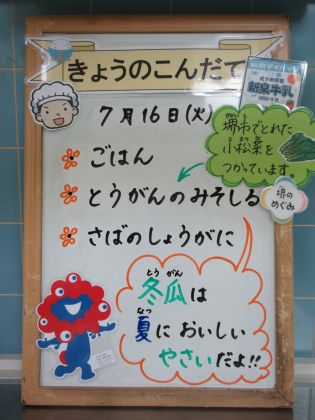 きょうのこんだて
成分無調整
新泉牛乳
7月16日(火)
ごはん
とうがんのみそしる
さばのしょうがに
堺市でとれた
小松菜を
つかっています。
堺の
めぐみ
とうがん
冬瓜は
なつ
夏においしい
やさいだよ!!